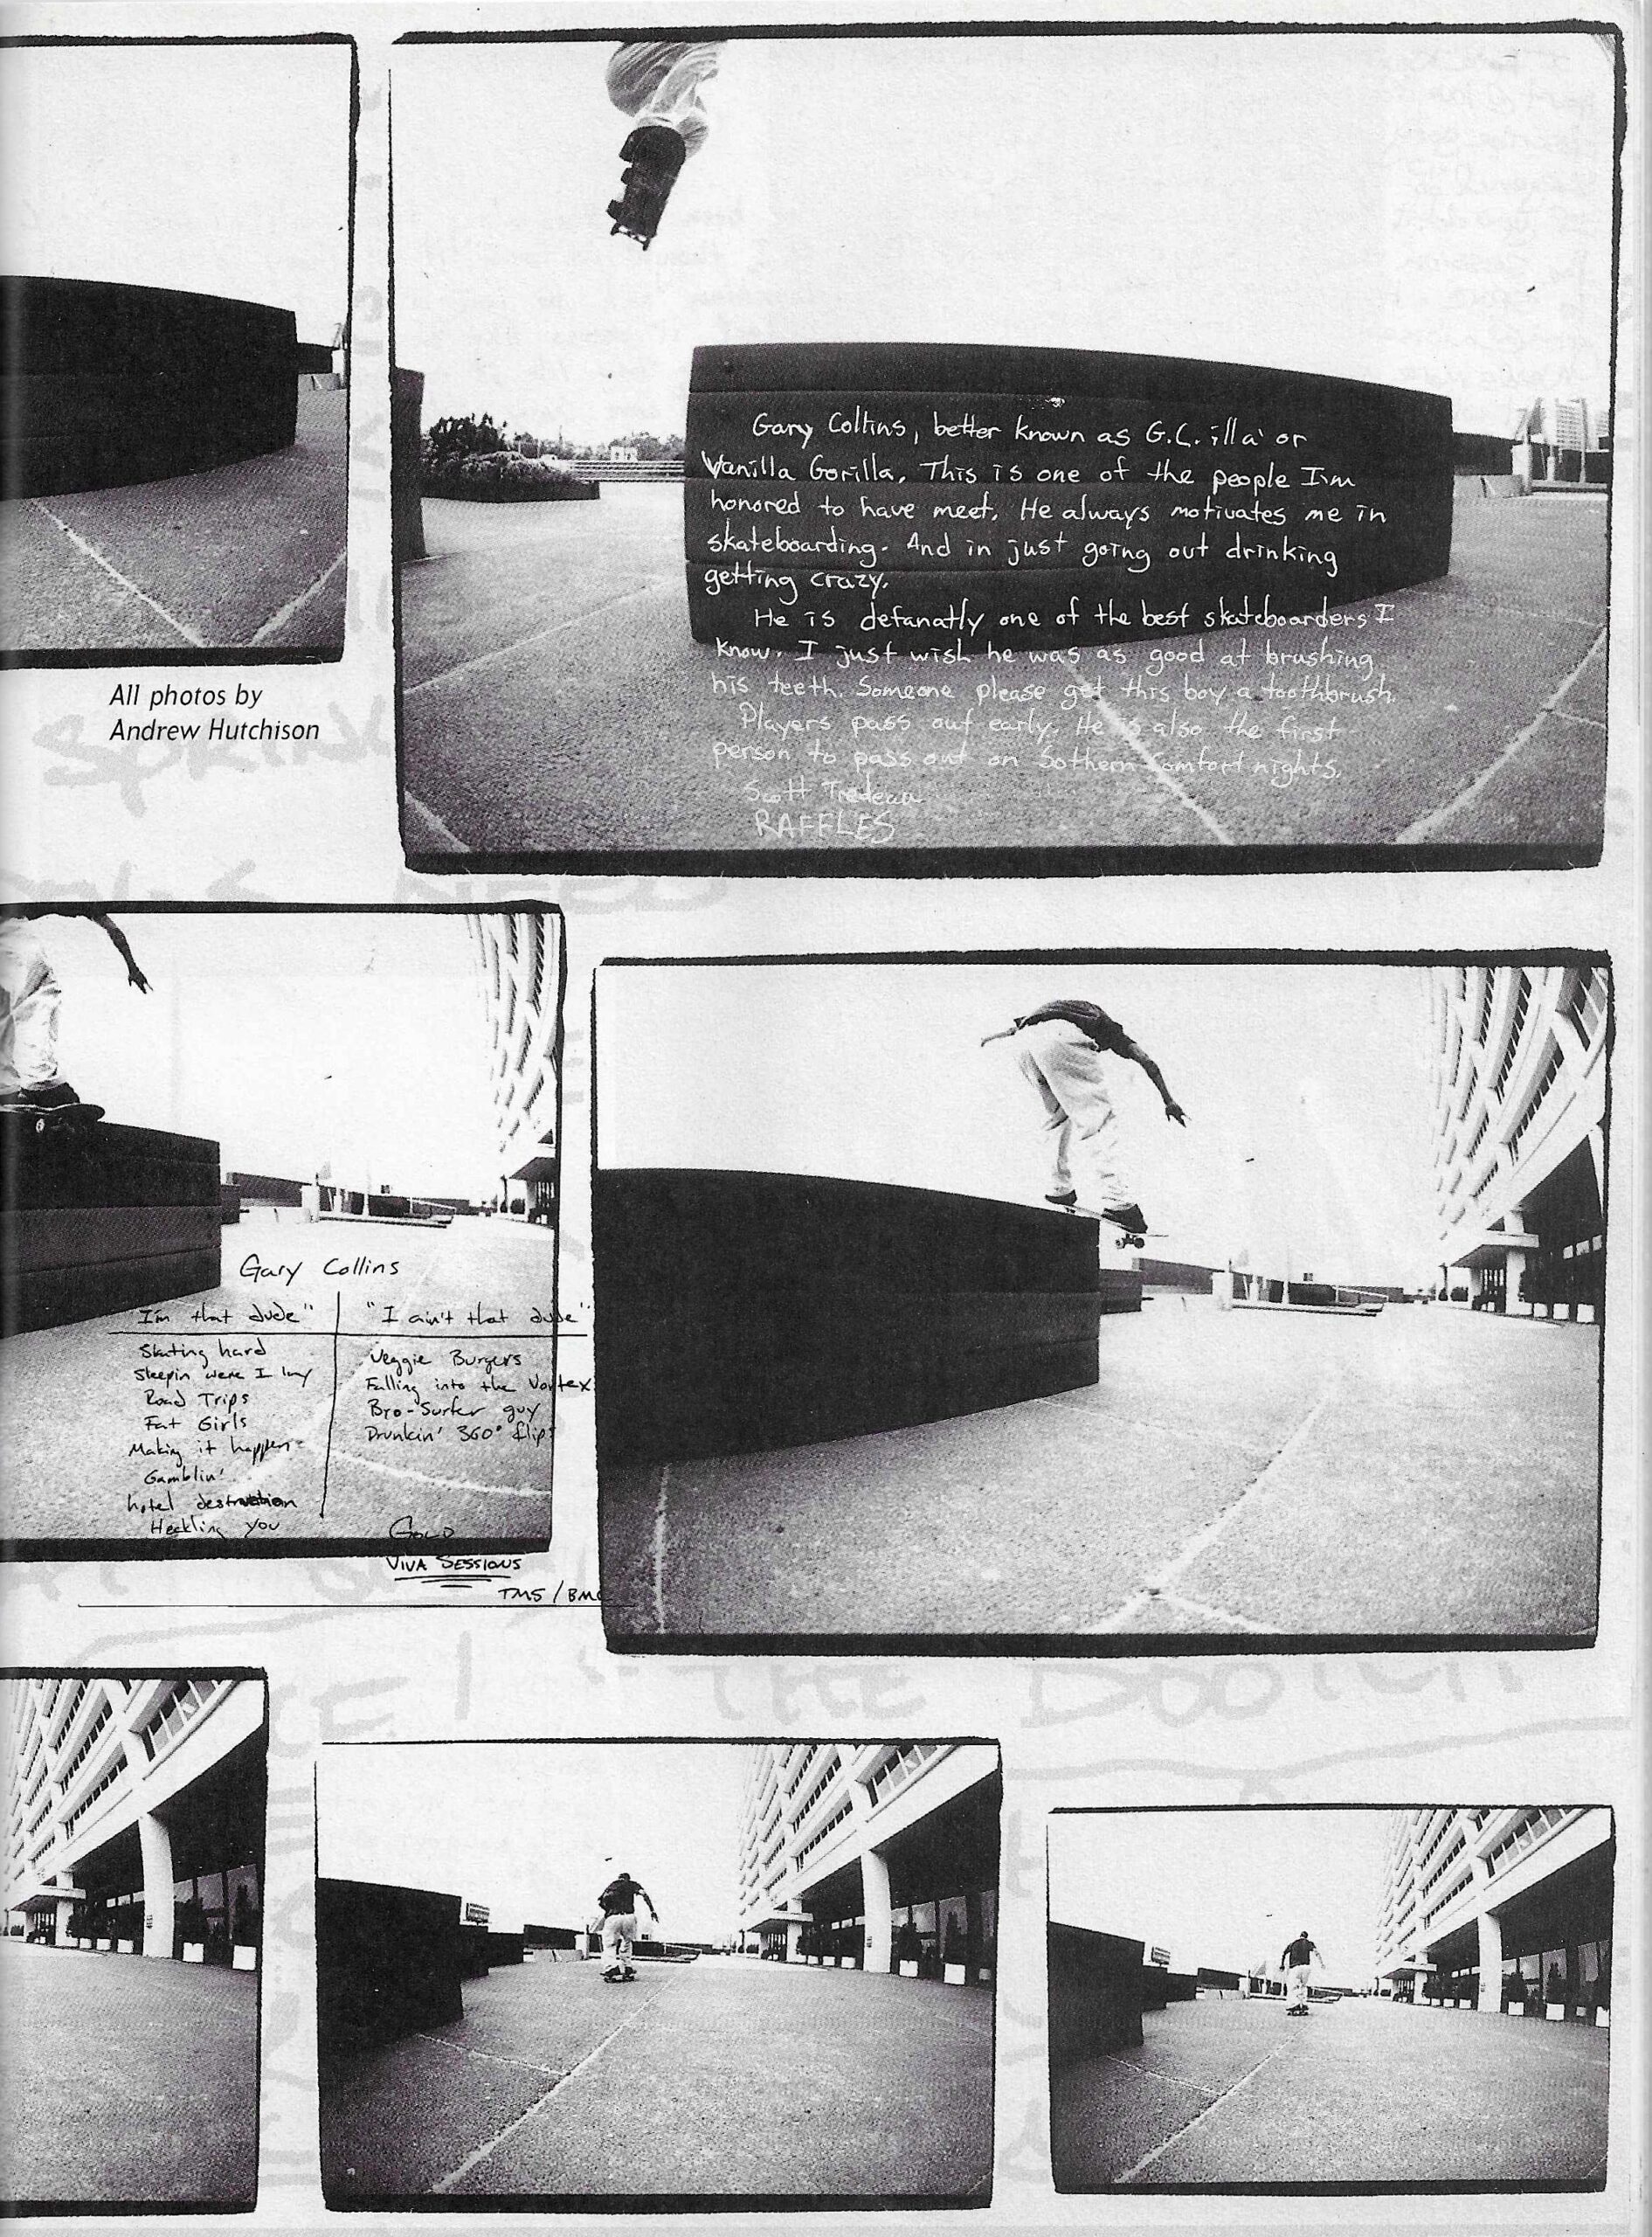 Gary Collins, better known as G.C. illa' or
Vanilla Gorilla. This is one of the people I'm
honored to have meet. He always motivates me in
skateboarding. And in just going out drinking
getting crazy.
He is defanatly one of the best skateboarders I
know. I just wish he was as good at brushing
his teeth. Someone please get this boy a toothbrush.
Players pass out early. He is also the first
person to pass out on Sothern Comfort nights.
Scott Tredeau
RAFFLES
All photos by
Andrew Hutchison
Gary Collins
I'm that dude"
Skating hard
Sleepin were I lay
Road Trips
Fat Girls
Making it happen
Gamblin'
hotel destruction
Heckling you
"I ain't that dude"
Veggie Burgers
Falling into the Vortex
Bro-Surfer guy
Drunkin' 360° flips
GOLD
VIVA SESSIONS
TMS / BMC
NEED
THE